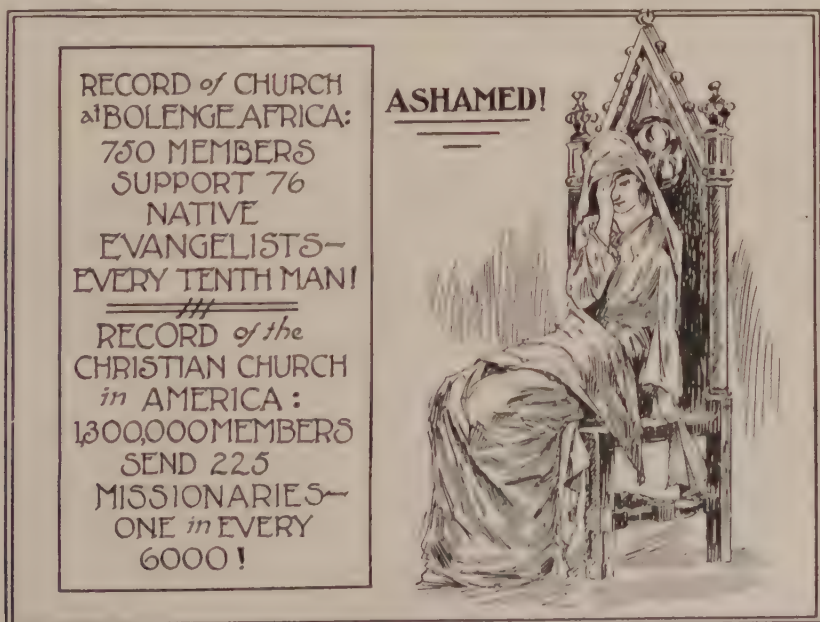 RECORD of CHURCH
at BOLENGE AFRICA:
750 MEMBERS
SUPPORT 76
NATIVE
EVANGELISTS—
EVERY TENTH MAN!
RECORD of the
CHRISTIAN CHURCH
in AMERICA:
1,300,000 MEMBERS
SEND 225
MISSIONARIES—
ONE in EVERY
6000!
ASHAMED!